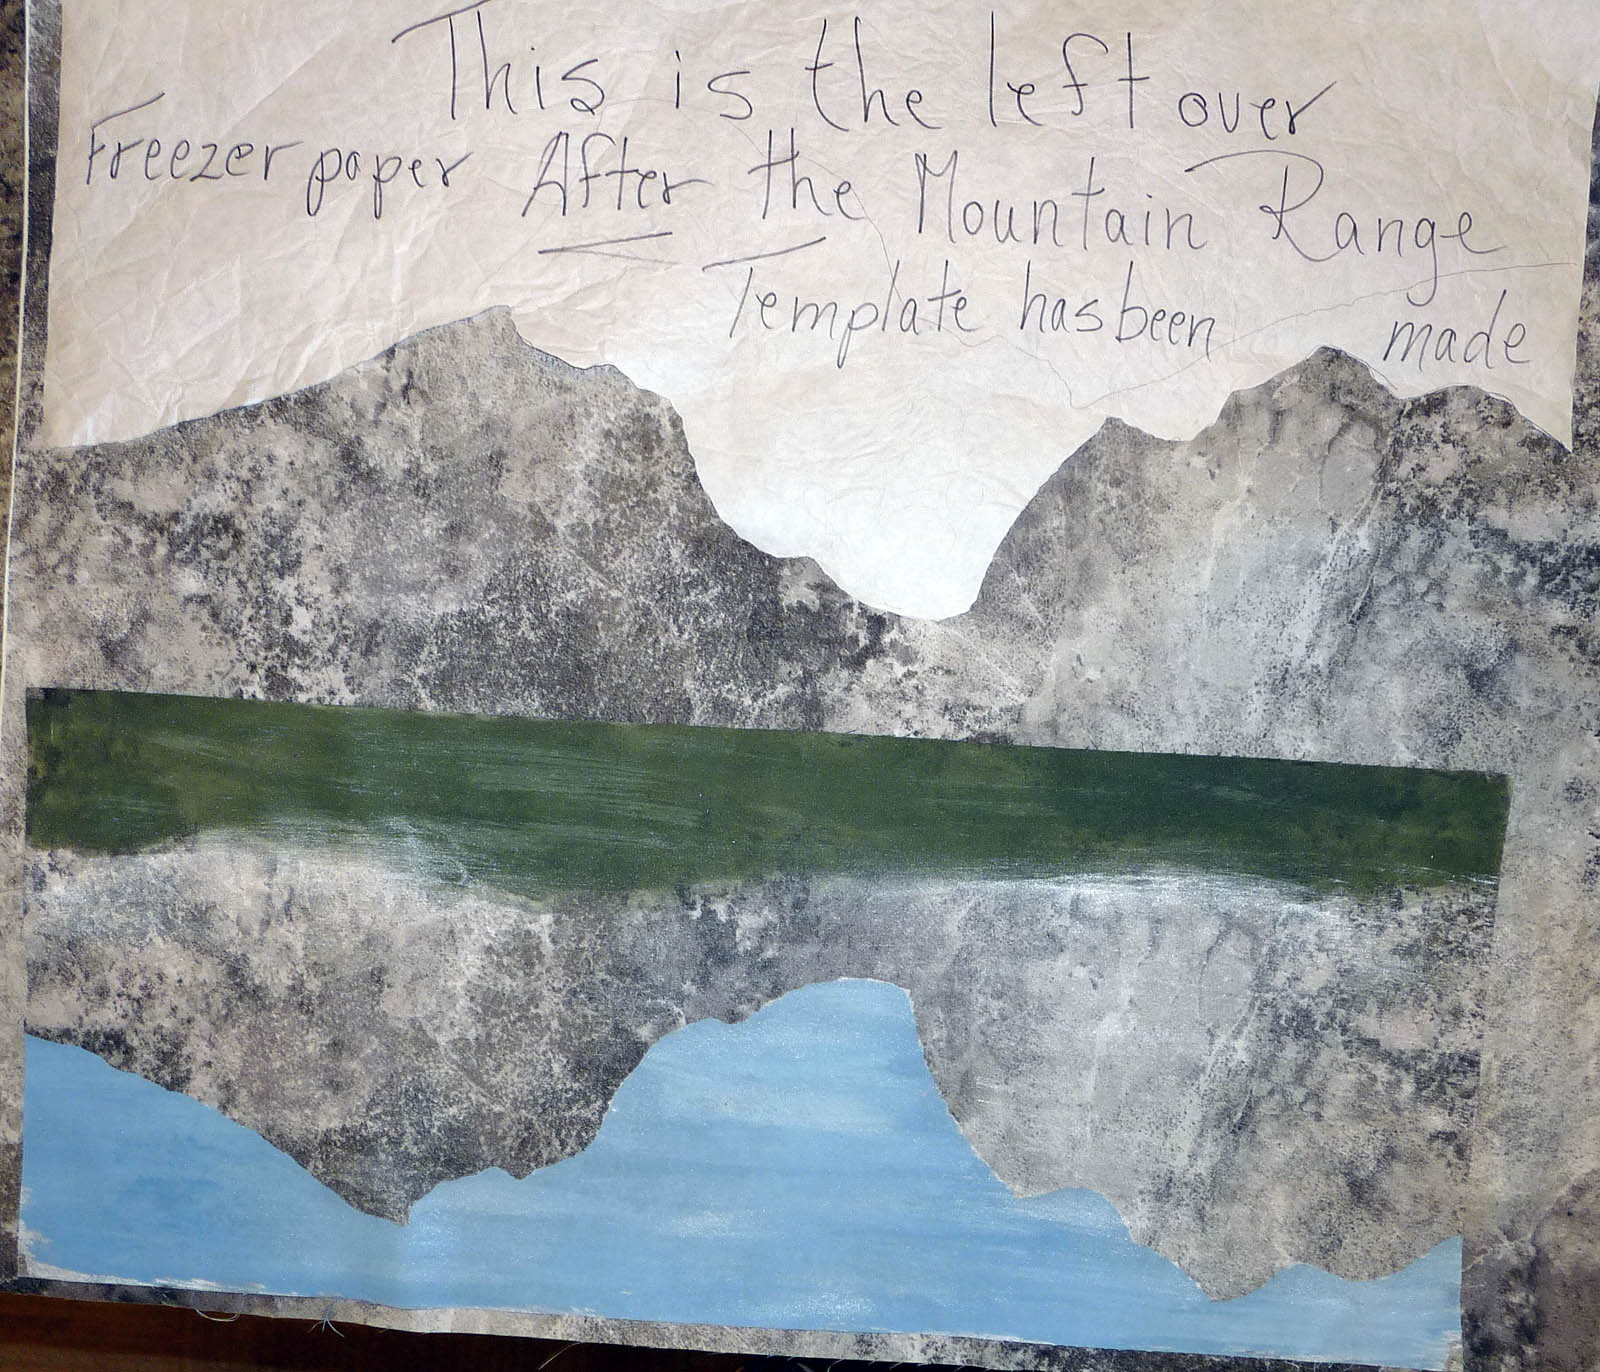 This is the left over
Freezer paper After the Mountain Range
Template has been made